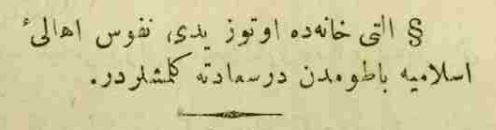 § التی خانه‌ده اوتوز یدی، نفوس اهالیٔ
اسلامیه باطومدن درسعادته کلمشلردر.